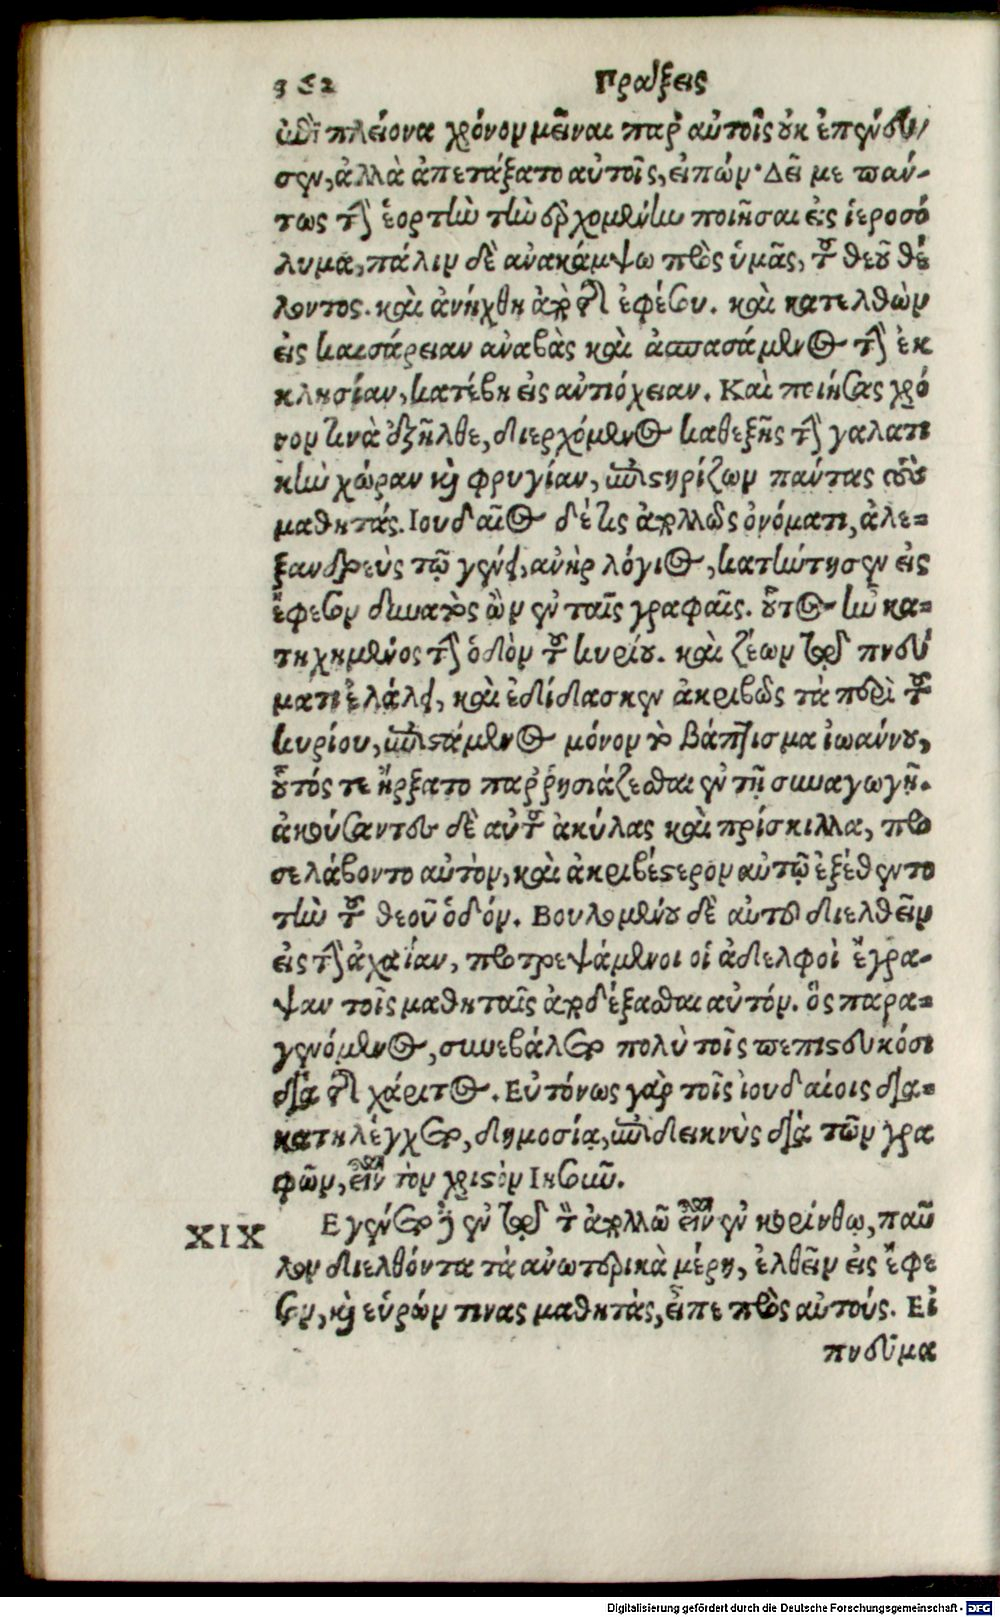 352 Πράξεις
ἐπὶ πλείονα χρόνον μεῖναι παρ' αὐτοῖς οὐκ ἐπένευ/
σεν, ἀλλὰ ἀπετάξατο αὐτοῖς, εἰπών· Δεῖ με πάν-
τως τὴν ἑορτὴν τὴν ἐρχομένην ποιῆσαι εἰς ἱεροσό
λυμα, πάλιν δὲ ἀνακάμψω πρὸς ὑμᾶς, τοῦ θεοῦ θέ
λοντος. καὶ ἀνήχθη ἀπὸ τῆς ἐφέσου. καὶ κατελθὼν
εἰς καισάρειαν ἀναβὰς καὶ ἀσπασάμενος τὴν ἐκ
κλησίαν, κατέβη εἰς ἀντιόχειαν. Καὶ ποιήσας χρό
νον τινὰ ἐξῆλθε, διερχόμενος καθεξῆς τὴν γαλατι
κὴν χώραν καὶ φρυγίαν, ἐπιστηρίζων πάντας τοὺς
μαθητάς. Ιουδαῖος δέ τις ἀπολλὼς ὀνόματι, ἀλε=
ξανδρεὺς τῷ γένει, ἀνὴρ λόγιος, κατήντησεν εἰς
ἔφεσον δυνατὸς ὢν ἐν ταῖς γραφαῖς. οὗτος ἦν κα=
τηχημένος τὴν ὁδὸν τοῦ κυρίου. καὶ ζέων τῷ πνεύ
ματι ἐλάλει, καὶ ἐδίδασκεν ἀκριβῶς τὰ περὶ τοῦ
κυρίου, ἐπιστάμενος μόνον τὸ βάπτισμα ἰωάννου,
οὗτός τε ἤρξατο παῤῥησιάζεσθαι ἐν τῇ συναγωγῇ.
ἀκούσαντες δὲ αὐτοῦ ἀκύλας καὶ πρίσκιλλα, προ
σελάβοντο αὐτὸν, καὶ ἀκριβέστερον αὐτῷ ἐξέθεντο
τὴν τοῦ θεοῦ ὁδόν. Βουλομένου δὲ αὐτοῦ διελθεῖν
εἰς τὴν ἀχαΐαν, προτρεψάμενοι οἱ ἀδελφοὶ ἔγρα-
ψαν τοῖς μαθηταῖς ἀποδέξασθαι αὐτόν. ὃς παρα=
γενόμενος, συνεβάλετο πολὺ τοῖς πεπιστευκόσι
διὰ τῆς χάριτος. Εὐτόνως γὰρ τοῖς ἰουδαίοις δια=
κατηλέγχετο, δημοσίᾳ, ἐπιδεικνὺς διὰ τῶν γρα
φῶν, εἶναι τὸν χριστὸν Ιησοῦν.
XIX Εγένετο δὲ ἐν τῷ τὸν ἀπολλῶ εἶναι ἐν κορίνθῳ, παῦ
λον διελθόντα τὰ ἀνωτερικὰ μέρη, ἐλθεῖν εἰς ἔφε
σον, καὶ εὑρών τινας μαθητὰς, εἶπε πρὸς αὐτούς. Εἰ
πνεῦμα
Digitalisierung gefördert durch die Deutsche Forschungsgemeinschaft - DFG